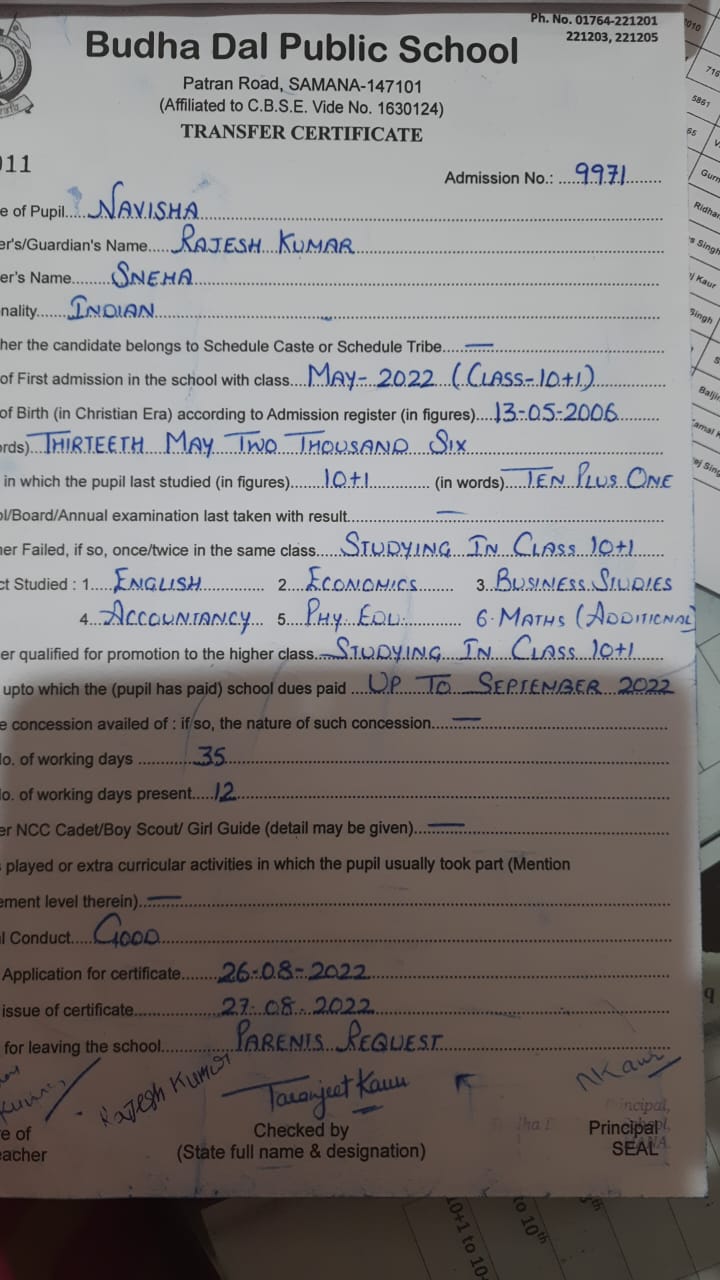 Ph. No. 01764-221201
221203, 221205
Budha Dal Public School
Patran Road, SAMANA-147101
(Affiliated to C.B.S.E. Vide No. 1630124)
TRANSFER CERTIFICATE
011
Admission No.: 9971
e of Pupil NAVISHA
er's/Guardian's Name RAJESH KUMAR
er's Name SNEHA
nality INDIAN
her the candidate belongs to Schedule Caste or Schedule Tribe —
of First admission in the school with class MAY-2022 (CLASS-10+1)
of Birth (in Christian Era) according to Admission register (in figures) 13-05-2006
ords) THIRTEETH MAY TWO THOUSAND SIX
in which the pupil last studied (in figures) 10+1 (in words) TEN PLUS ONE
ol/Board/Annual examination last taken with result —
her Failed, if so, once/twice in the same class STUDYING IN CLASS 10+1
ct Studied : 1. ENGLISH 2. ECONOMICS 3. BUSINESS STUDIES
4. ACCOUNTANCY 5. PHY. EDU. 6. MATHS (ADDITIONAL)
er qualified for promotion to the higher class STUDYING IN CLASS 10+1
upto which the (pupil has paid) school dues paid UP TO SEPTEMBER 2022
e concession availed of : if so, the nature of such concession —
lo. of working days 35
lo. of working days present 12
er NCC Cadet/Boy Scout/ Girl Guide (detail may be given) —
played or extra curricular activities in which the pupil usually took part (Mention
ement level therein) —
l Conduct GOOD
Application for certificate 26-08-2022
issue of certificate 27-08-2022
for leaving the school PARENTS REQUEST
Rajesh Kumar Taranjeet Kaur NKaur
re of Checked by Principal
eacher (State full name & designation) SEAL